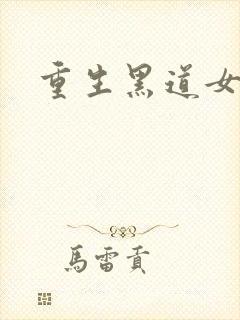 重生黑道女
馬雷貢